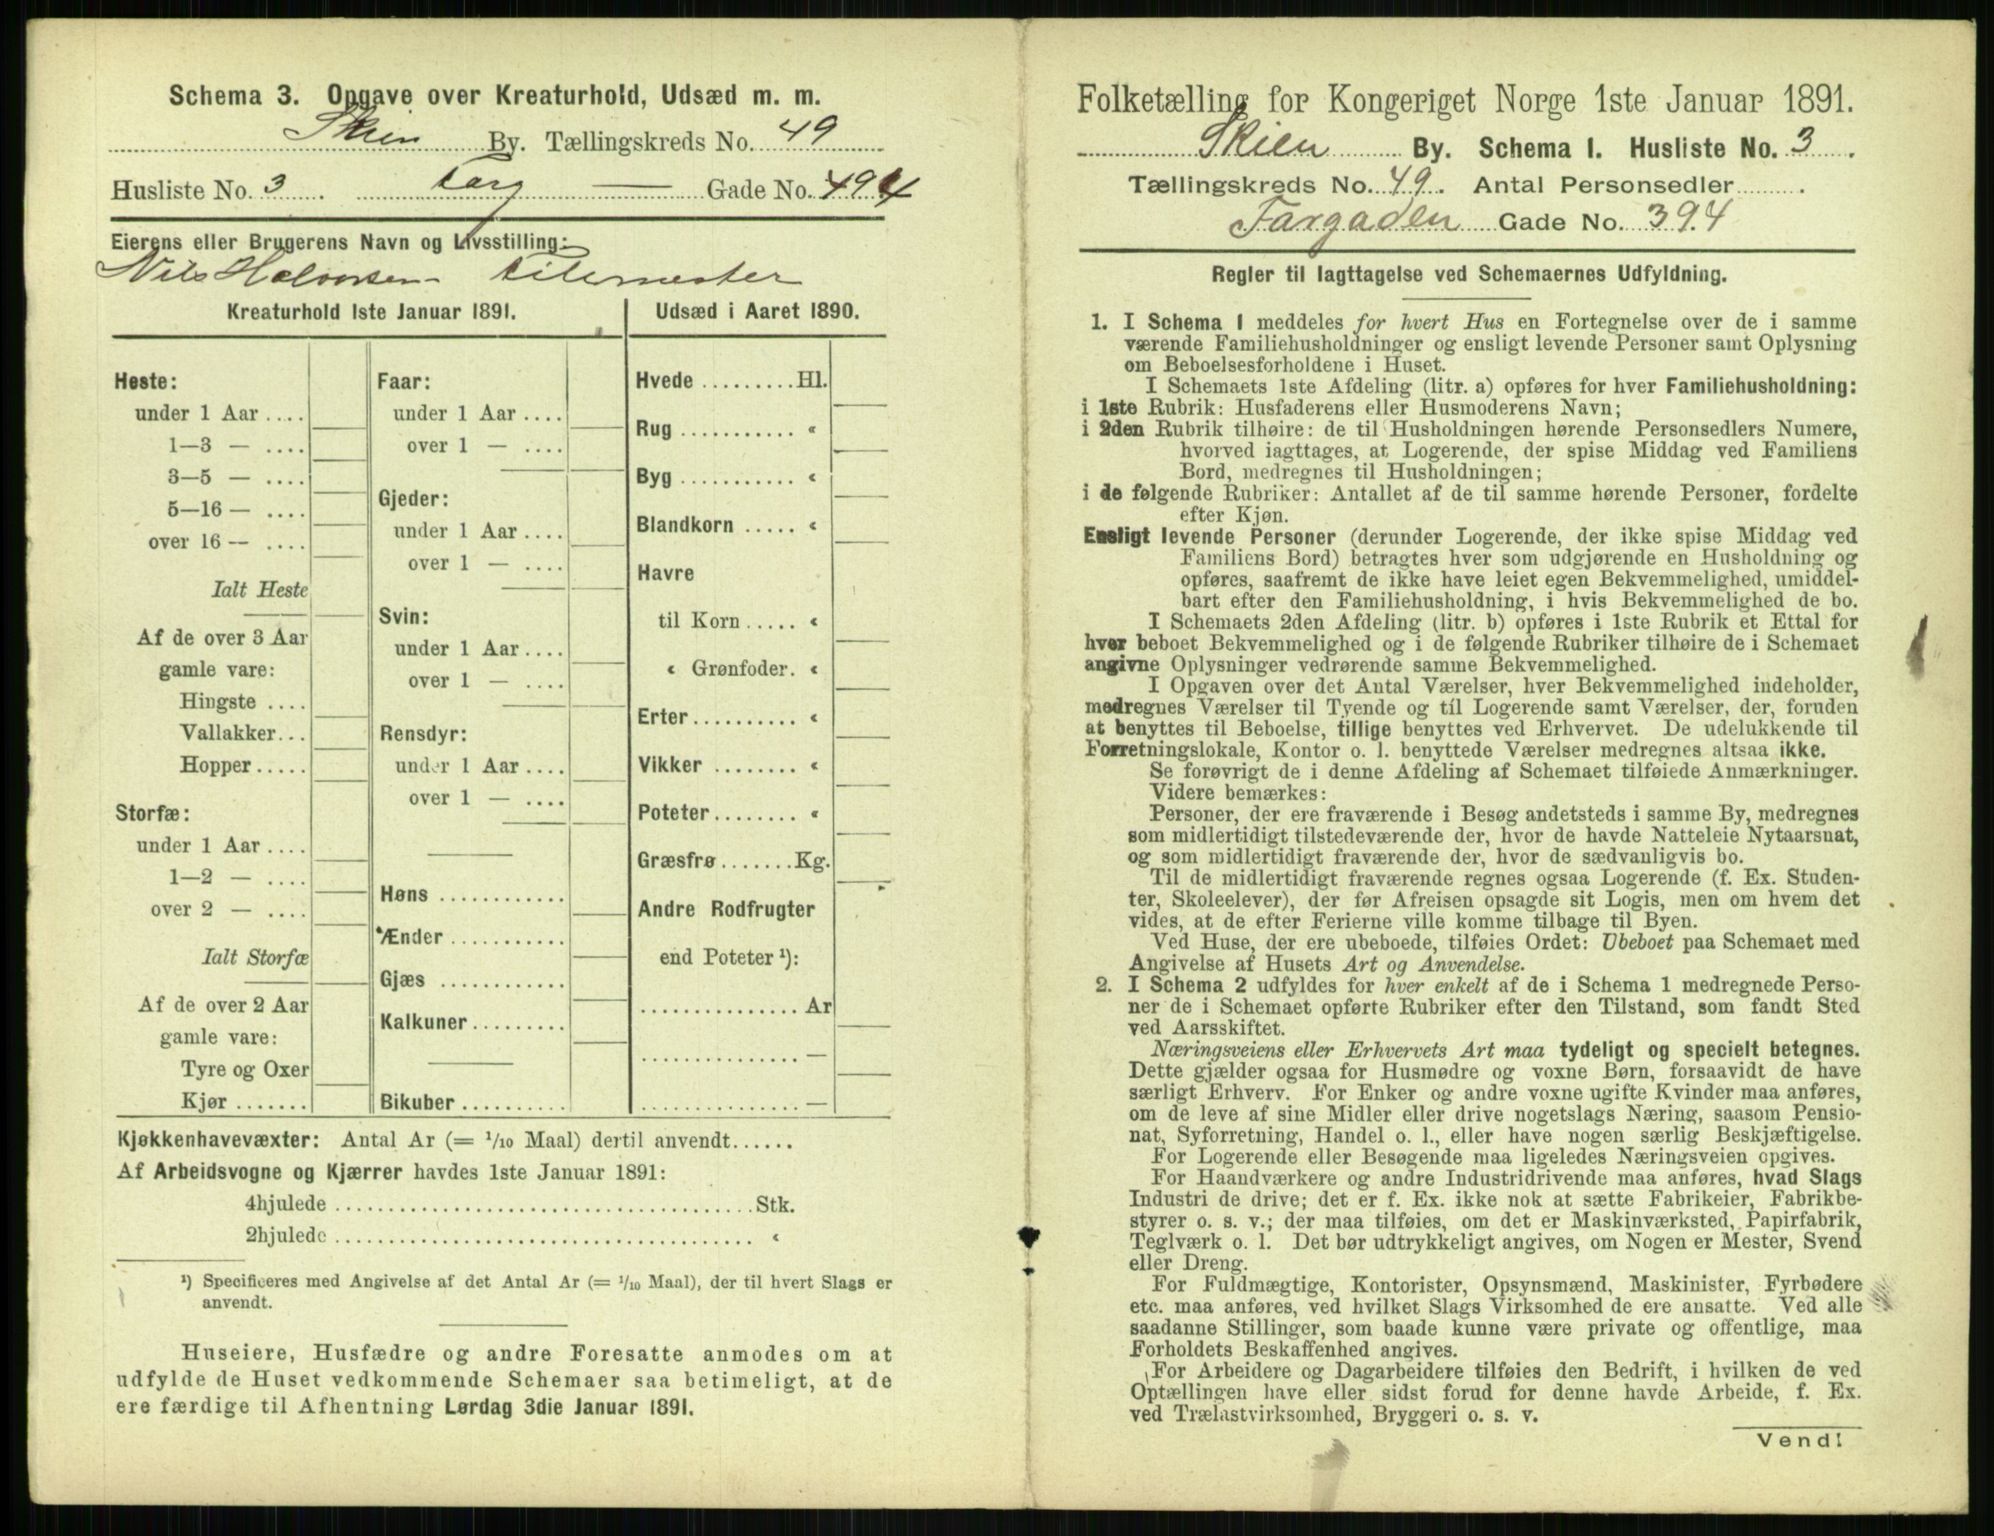 Schema 3. Opgave over Kreaturhold, Udsæd m. m.
Skien By. Tællingskreds No. 49
Husliste No. 3 Farg — Gade No. 494
Eierens eller Brugerens Navn og Livsstilling:
Nils Halvorsen
Kreaturhold 1ste Januar 1891.
Udsæd i Aaret 1890.
Heste:
under 1 Aar ....
1—3 — ....
3—5 — ....
5—16 — ....
over 16 — ....
Ialt Heste
Af de over 3 Aar
gamle vare:
Hingste ....
Vallakker...
Hopper.....
Storfæ:
under 1 Aar ....
1—2 — ....
over 2 — ....
Ialt Storfæ
Af de over 2 Aar
gamle vare:
Tyre og Oxer
Kjør .......
Faar:
under 1 Aar ....
over 1 — ....
Gjeder:
under 1 Aar ....
over 1 — ....
Svin:
under 1 Aar ....
over 1 — ....
Rensdyr:
under 1 Aar ....
over 1 — ....
Høns ............
Ænder ...........
Gjæs ............
Kalkuner .........
Bikuber ..........
Hvede .........Hl.
Rug ........... «
Byg ........... «
Blandkorn ..... «
Havre
til Korn ..... «
« Grønfoder. «
Erter.......... «
Vikker ........ «
Poteter........ «
Græsfrø .......Kg.
Andre Rodfrugter
end Poteter ¹):
............... Ar
............... —
............... —
Kjøkkenhavevæxter: Antal Ar (= 1/10 Maal) dertil anvendt......
Af Arbeidsvogne og Kjærrer havdes 1ste Januar 1891:
4hjulede ......................................Stk.
2hjulede ...................................... «
¹) Specificeres med Angivelse af det Antal Ar (= 1/10 Maal), der til hvert Slags er
anvendt.
Huseiere, Husfædre og andre Foresatte anmodes om at
udfylde de Huset vedkommende Schemaer saa betimeligt, at de
ere færdige til Afhentning Lørdag 3die Januar 1891.
Folketælling for Kongeriget Norge 1ste Januar 1891.
Skien By. Schema 1. Husliste No. 3.
Tællingskreds No. 49. Antal Personsedler ..........
Fargaden Gade No. 394
Regler til Iagttagelse ved Schemaernes Udfyldning.
1. I Schema 1 meddeles for hvert Hus en Fortegnelse over de i samme
værende Familiehusholdninger og ensligt levende Personer samt Oplysning
om Beboelsesforholdene i Huset.
I Schemaets 1ste Afdeling (litr. a) opføres for hver Familiehusholdning:
i 1ste Rubrik: Husfaderens eller Husmoderens Navn;
i 2den Rubrik tilhøire: de til Husholdningen hørende Personsedlers Numere,
hvorved iagttages, at Logerende, der spise Middag ved Familiens
Bord, medregnes til Husholdningen;
i de følgende Rubriker: Antallet af de til samme hørende Personer, fordelte
efter Kjøn.
Ensligt levende Personer (derunder Logerende, der ikke spise Middag ved
Familiens Bord) betragtes hver som udgjørende en Husholdning og
opføres, saafremt de ikke have leiet egen Bekvemmelighed, umiddel-
bart efter den Familiehusholdning, i hvis Bekvemmelighed de bo.
I Schemaets 2den Afdeling (litr. b) opføres i 1ste Rubrik et Ettal for
hver beboet Bekvemmelighed og i de følgende Rubriker tilhøire de i Schemaet
angivne Oplysninger vedrørende samme Bekvemmelighed.
I Opgaven over det Antal Værelser, hver Bekvemmelighed indeholder,
medregnes Værelser til Tyende og til Logerende samt Værelser, der, foruden
at benyttes til Beboelse, tillige benyttes ved Erhvervet. De udelukkende til
Forretningslokale, Kontor o. l. benyttede Værelser medregnes altsaa ikke.
Se forøvrigt de i denne Afdeling af Schemaet tilføiede Anmærkninger.
Videre bemærkes:
Personer, der ere fraværende i Besøg andetsteds i samme By, medregnes
som midlertidigt tilstedeværende der, hvor de havde Natteleie Nytaarsnat,
og som midlertidigt fraværende der, hvor de sædvanligvis bo.
Til de midlertidigt fraværende regnes ogsaa Logerende (f. Ex. Studen-
ter, Skoleelever), der før Afreisen opsagde sit Logis, men om hvem det
vides, at de efter Ferierne ville komme tilbage til Byen.
Ved Huse, der ere ubeboede, tilføies Ordet: Ubeboet paa Schemaet med
Angivelse af Husets Art og Anvendelse.
2. I Schema 2 udfyldes for hver enkelt af de i Schema 1 medregnede Perso-
ner de i Schemaet opførte Rubriker efter den Tilstand, som fandt Sted
ved Aarsskiftet.
Næringsveiens eller Erhvervets Art maa tydeligt og specielt betegnes.
Dette gjælder ogsaa for Husmødre og voxne Børn, forsaavidt de have
særligt Erhverv. For Enker og andre voxne ugifte Kvinder maa anføres,
om de leve af sine Midler eller drive nogetslags Næring, saasom Pensio-
nat, Syforretning, Handel o. l., eller have nogen særlig Beskjæftigelse.
For Logerende eller Besøgende maa ligeledes Næringsveien opgives.
For Haandværkere og andre Industridrivende maa anføres, hvad Slags
Industri de drive; det er f. Ex. ikke nok at sætte Fabrikeier, Fabrikbe-
styrer o. s. v.; der maa tilføies, om det er Maskinværksted, Papirfabrik,
Teglværk o. l. Det bør udtrykkeligt angives, om Nogen er Mester, Svend
eller Dreng.
For Fuldmægtige, Kontorister, Opsynsmænd, Maskinister, Fyrbødere
etc. maa anføres, ved hvilket Slags Virksomhed de ere ansatte. Ved alle
saadanne Stillinger, som baade kunne være private og offentlige, maa
Forholdets Beskaffenhed angives.
For Arbeidere og Dagarbeidere tilføies den Bedrift, i hvilken de ved
Optællingen have eller sidst forud for denne havde Arbeide, f. Ex.
ved Trælastvirksomhed, Bryggeri o. s. v.
Vend!